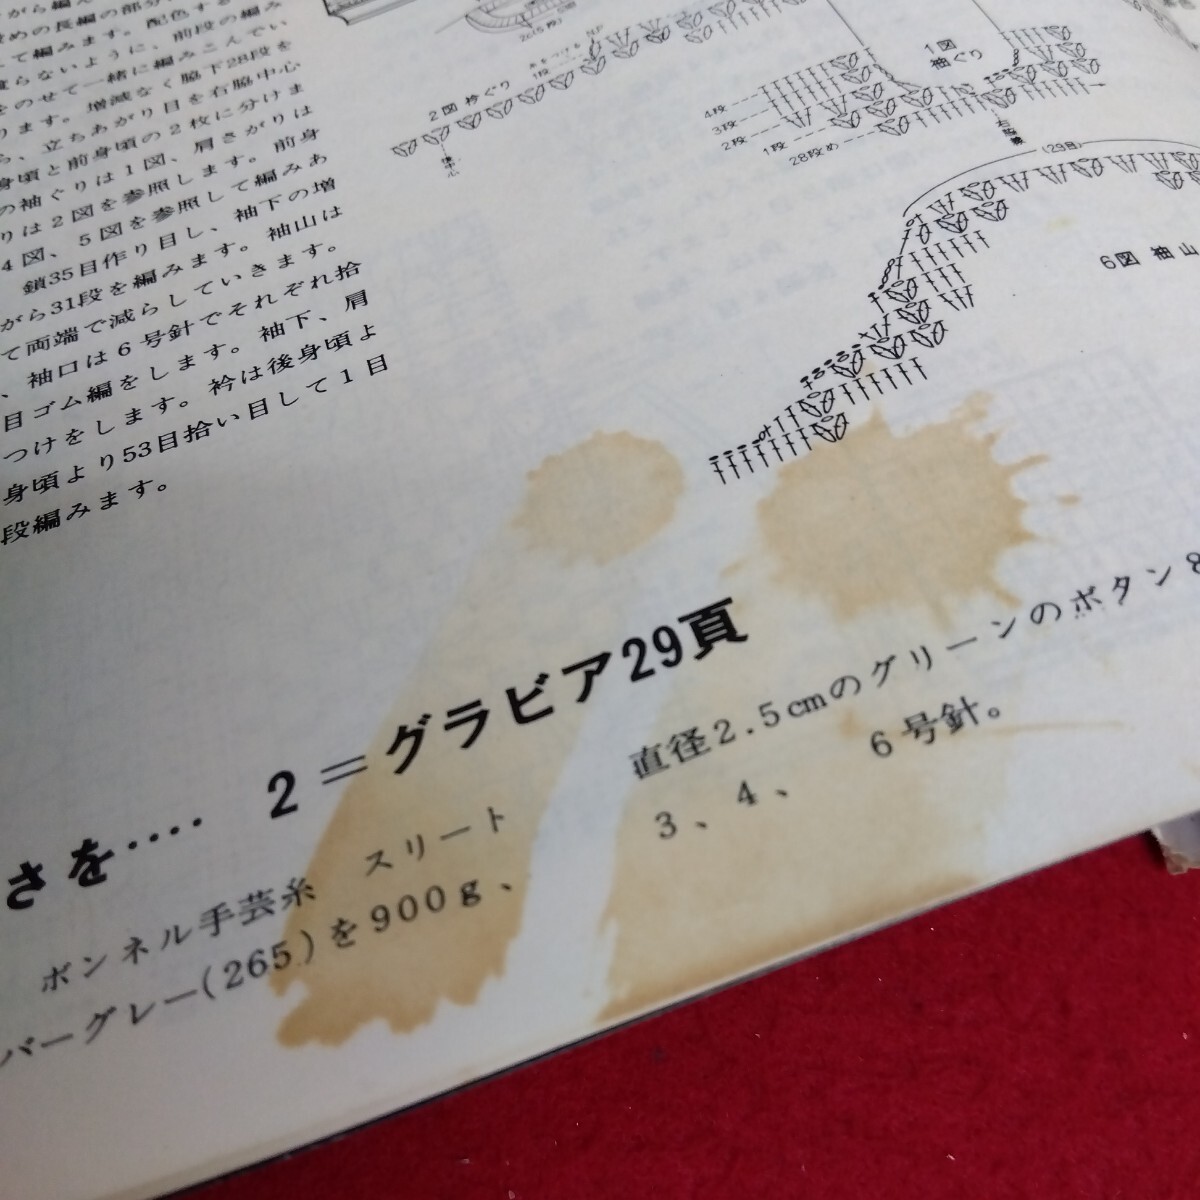 がら編ん
攵めの長編の部分
て編みます。配色する
渡らないように、前段の編み
をのせて一緒に編みこんでい
ります。増減なく脇下28段を
ら、立ちあがり目を右脇中心
身頃と前身頃の2枚に分けま
の袖ぐりは1図、肩さがりは
りは2図を参照します。前身
4図、5図を参照して編みあ
鎖35目作り目し、袖下の増
がら31段を編みます。袖山は
て両端で減らしていきます。
、袖口は6号針でそれぞれ拾
目ゴム編をします。袖下、肩
つけをします。衿は後身頃よ
身頃より53目拾い目して1目
段編みます。
2図 衿ぐり
1段
1図
袖ぐり
4段
3段
2段
1段
28段め
右脇線
(29目)
6図 袖山
さを‥‥ 2＝グラビア29頁
ボンネル手芸糸 スリート
バーグレー(265)を900g、
直径2.5cmのグリーンのボタン8
3、4、 6号針。